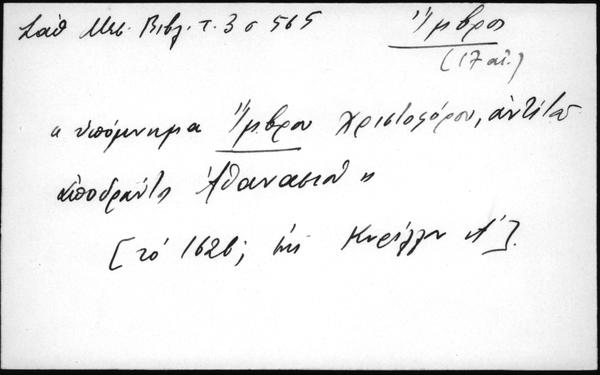 Σάθ Μεσ. Βιβλ. τ. 3 σ 565
Ἴμβρος
(17 αἰ.)
« ὑπόμνημα Ἴμβρου Χριστοφόρου, ἀντὶ τοῦ
ἀποδράντος Ἀθανασίου »
[τό 1626; ἐπί Κυρίλλου Α΄].